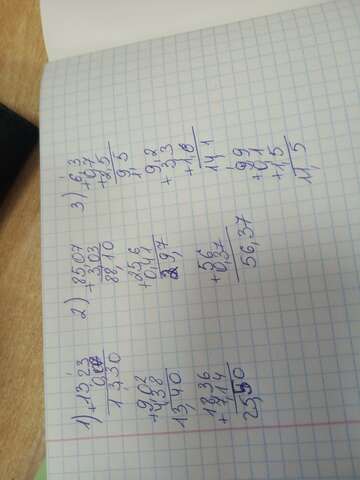 1) +13,23
17,30
9,02
+4,38
13,40
18,36
+7,14
25,50
2) +85,07
3,03
88,10
+25,6
+56
0,37
56,37
3) 6,3
+0,7
+2,5
9,5
9,2
+3,3
+1,6
14,1
9,9
+0,1
+1,5
11,5